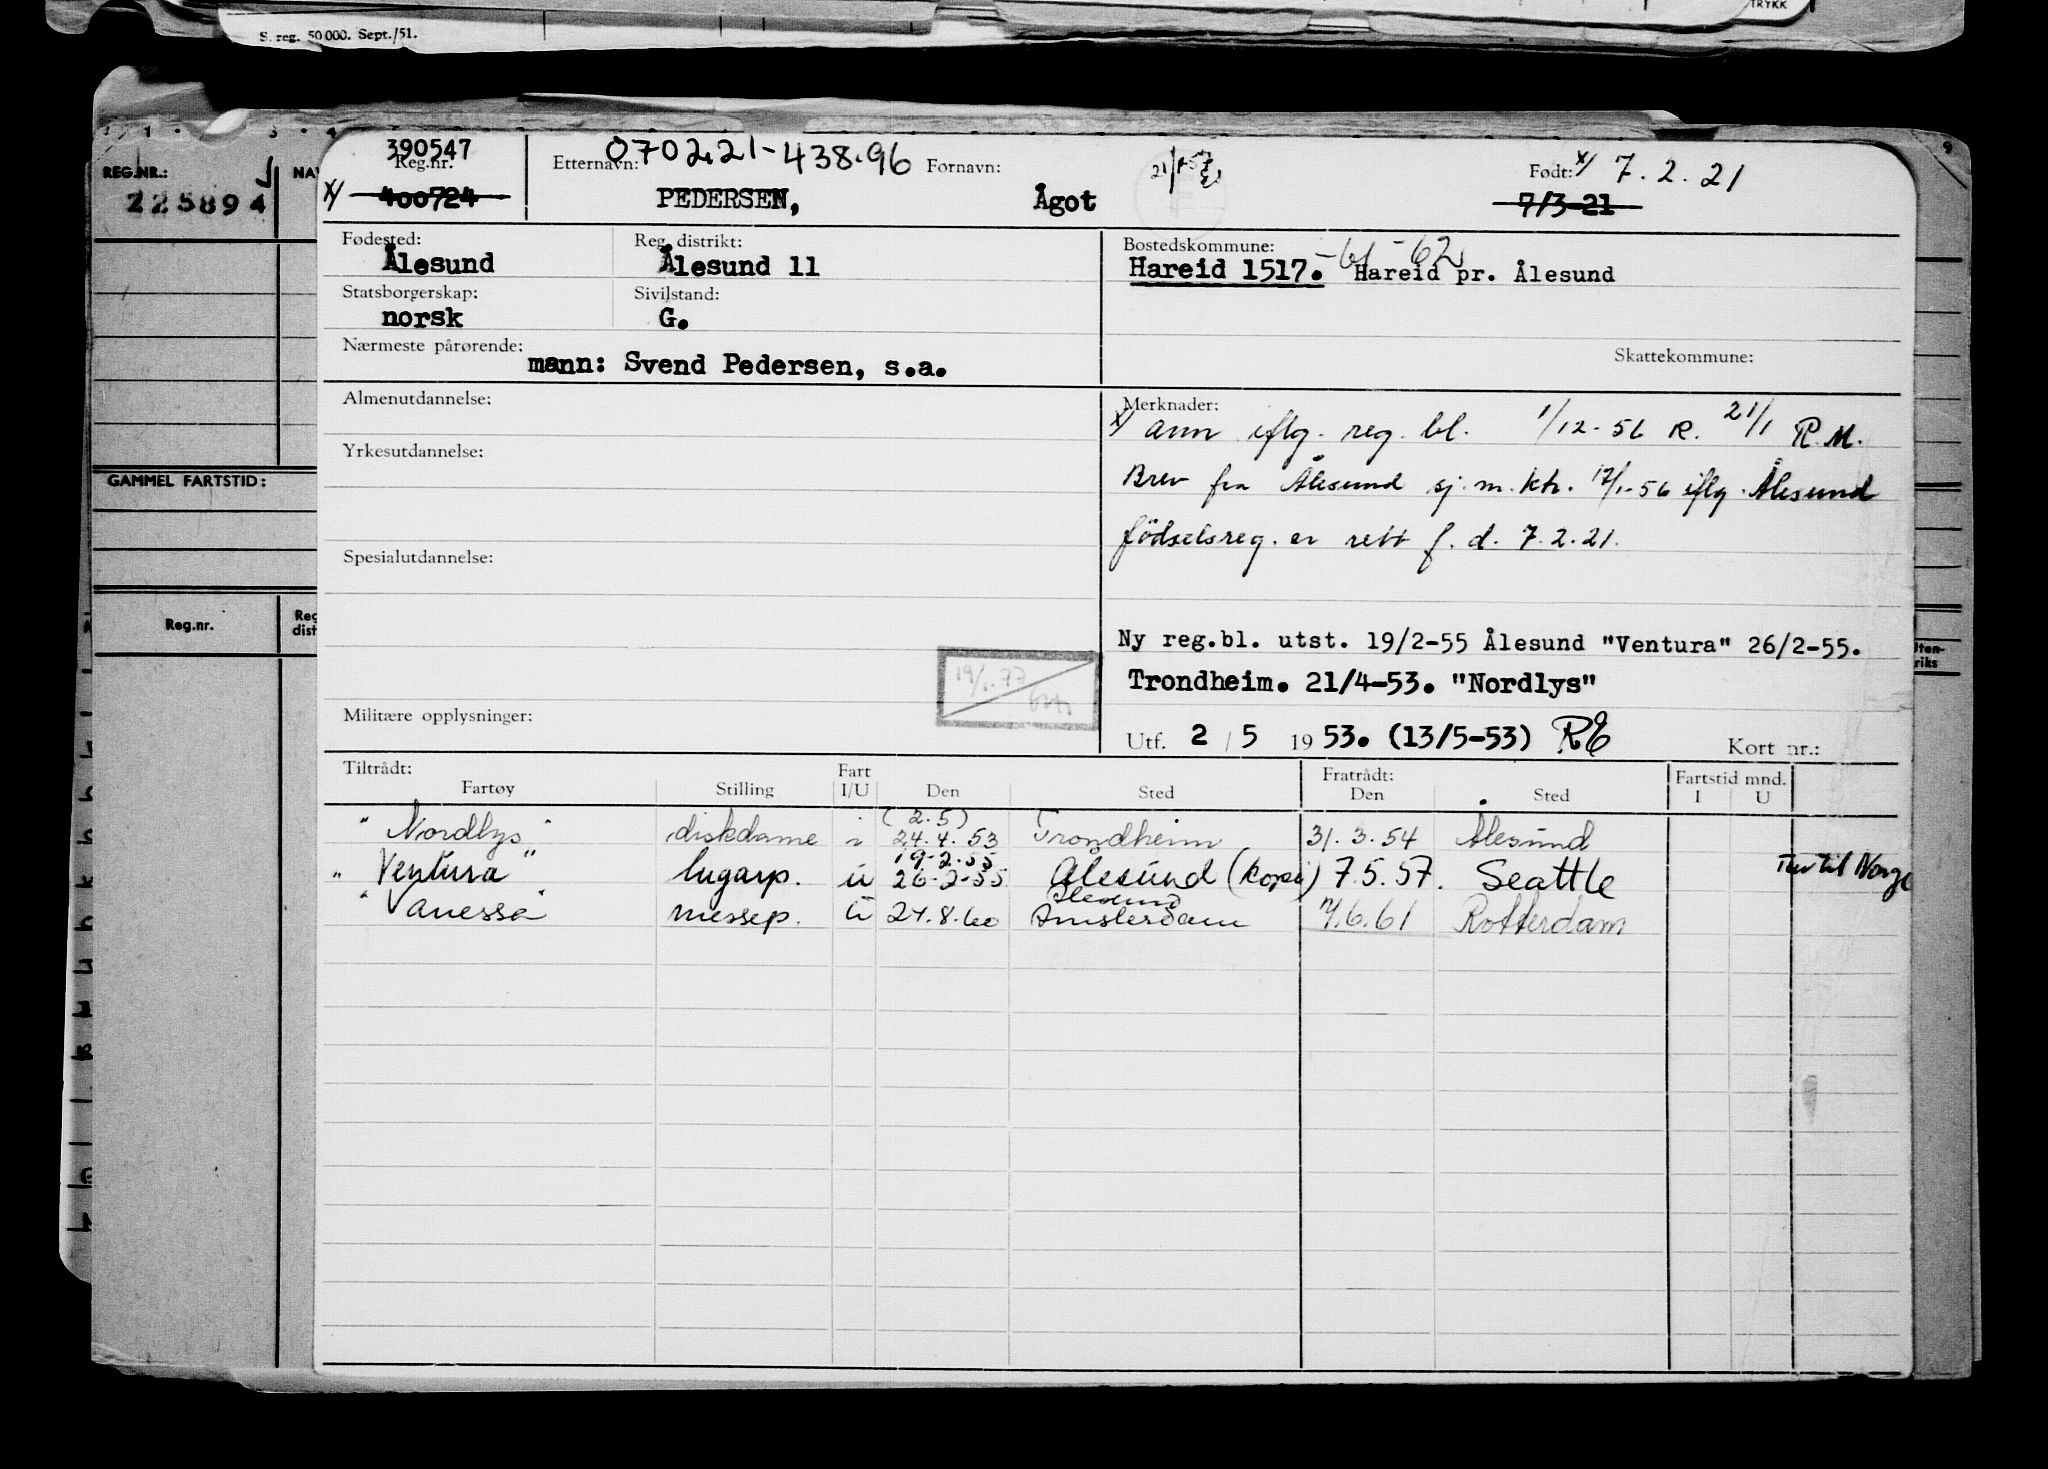 TRYKK
S. reg. 50 000. Sept./51.
REG.NR.:
225894
GAMMEL FARTSTID:
Reg.nr.
Reg
dist
390547
Reg.nr.
x/ 400724
Etternavn: 070221-438.96
PEDERSEN,
Fornavn:
Ågot
Født: x/ 7.2.21
7/3-21
Fødested:
Ålesund
Reg. distrikt:
Ålesund 11
Bostedskommune:
Hareid 1517. -61-62
Hareid pr. Ålesund
Statsborgerskap:
norsk
Sivilstand:
G.
Nærmeste pårørende:
mann: Svend Pedersen, s.a.
Skattekommune:
Almenutdannelse:
Yrkesutdannelse:
Spesialutdannelse:
Militære opplysninger:
19/1.77
Merknader:
x/ ann iflg. reg. bl. 1/12-56 R. 21/1 R.M.
Brev fra Ålesund sj.m.ktr. 17/1-56 iflg. Ålesund
fødselsreg. er rett f.d. 7.2.21.
Ny reg.bl. utst. 19/2-55 Ålesund "Ventura" 26/2-55.
Trondheim. 21/4-53. "Nordlys"
Utf. 2 / 5 1953. (13/5-53) RE
Kort nr.:
Tiltrådt:
Fartøy Stilling Fart I/U Den Sted
Fratrådt:
Den Sted
Fartstid mnd.
I U
(2.5)
"Nordlys" diskdame i 24.4.53 Trondheim 31.3.54 Ålesund
19-2-55
"Ventura" lugarp. u 26-2-55 Ålesund (kopi) 7.5.57. Seattle Tur til Norge
Ålesund
"Vanessa" messep. u 24.8.60 Amsterdam 7.6.61 Rotterdam